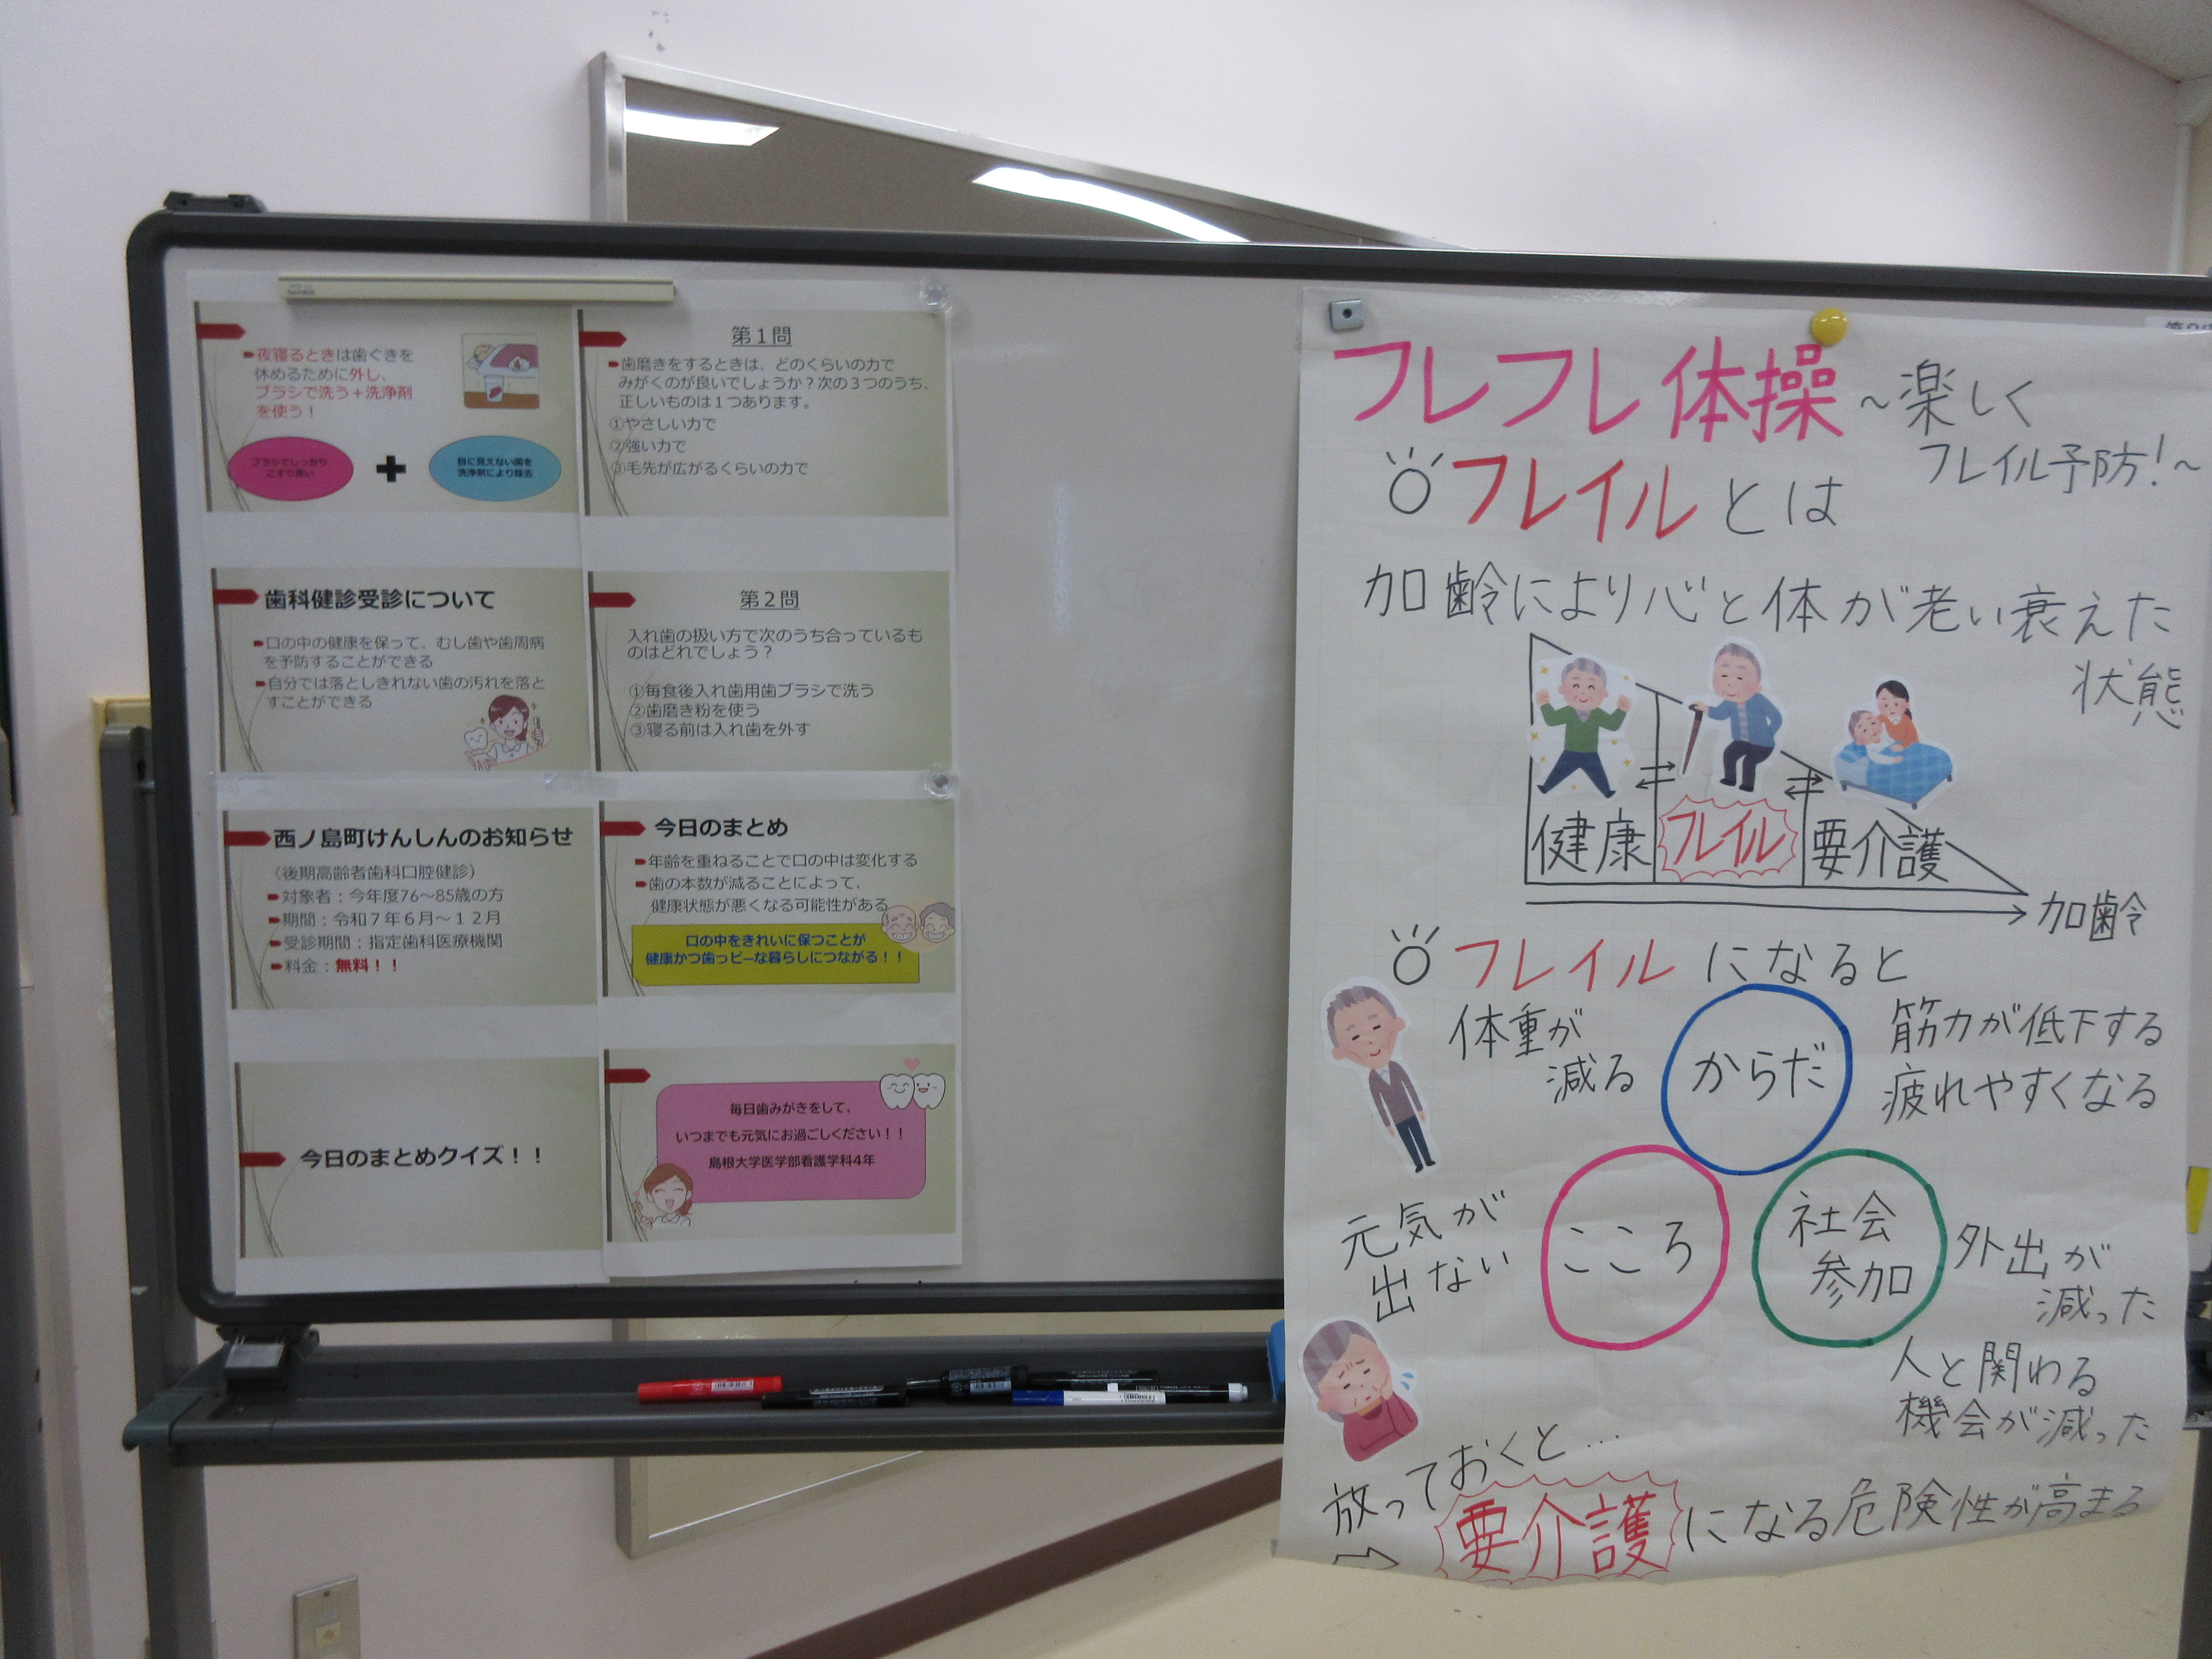 夜寝るときは歯ぐきを
休めるために外し、
ブラシで洗う＋洗浄剤
を使う！
ブラシでしっかり
こすり洗い
+
目に見えない菌を
洗浄剤により除去
歯科健診受診について
口の中の健康を保って、むし歯や歯周病
を予防することができる
自分では落としきれない歯の汚れを落と
すことができる
西ノ島町けんしんのお知らせ
〈後期高齢者歯科口腔健診〉
対象者：今年度76～85歳の方
期間：令和７年６月～１２月
受診期間：指定歯科医療機関
料金：無料！！
今日のまとめクイズ！！
第１問
歯磨きをするときは、どのくらいの力で
みがくのが良いでしょうか？次の３つのうち、
正しいものは１つあります。
①やさしい力で
②強い力で
③毛先が広がるくらいの力で
第２問
入れ歯の扱い方で次のうち合っているも
のはどれでしょう？
①毎食後入れ歯用歯ブラシで洗う
②歯磨き粉を使う
③寝る前は入れ歯を外す
今日のまとめ
年齢を重ねることで口の中は変化する
歯の本数が減ることによって、
健康状態が悪くなる可能性がある
口の中をきれいに保つことが
健康かつ歯ッピーな暮らしにつながる！！
毎日歯みがきをして、
いつまでも元気にお過ごしください！！
島根大学医学部看護学科4年
フレフレ体操 ～楽しく
フレイル予防！～
フレイルとは
加齢により心と体が老い衰えた
状態
健康 フレイル 要介護
加齢
フレイルになると
体重が
減る
からだ
筋力が低下する
疲れやすくなる
元気が
出ない
こころ
社会
参加
外出が
減った
人と関わる
機会が減った
放っておくと…
⇨ 要介護になる危険性が高まる